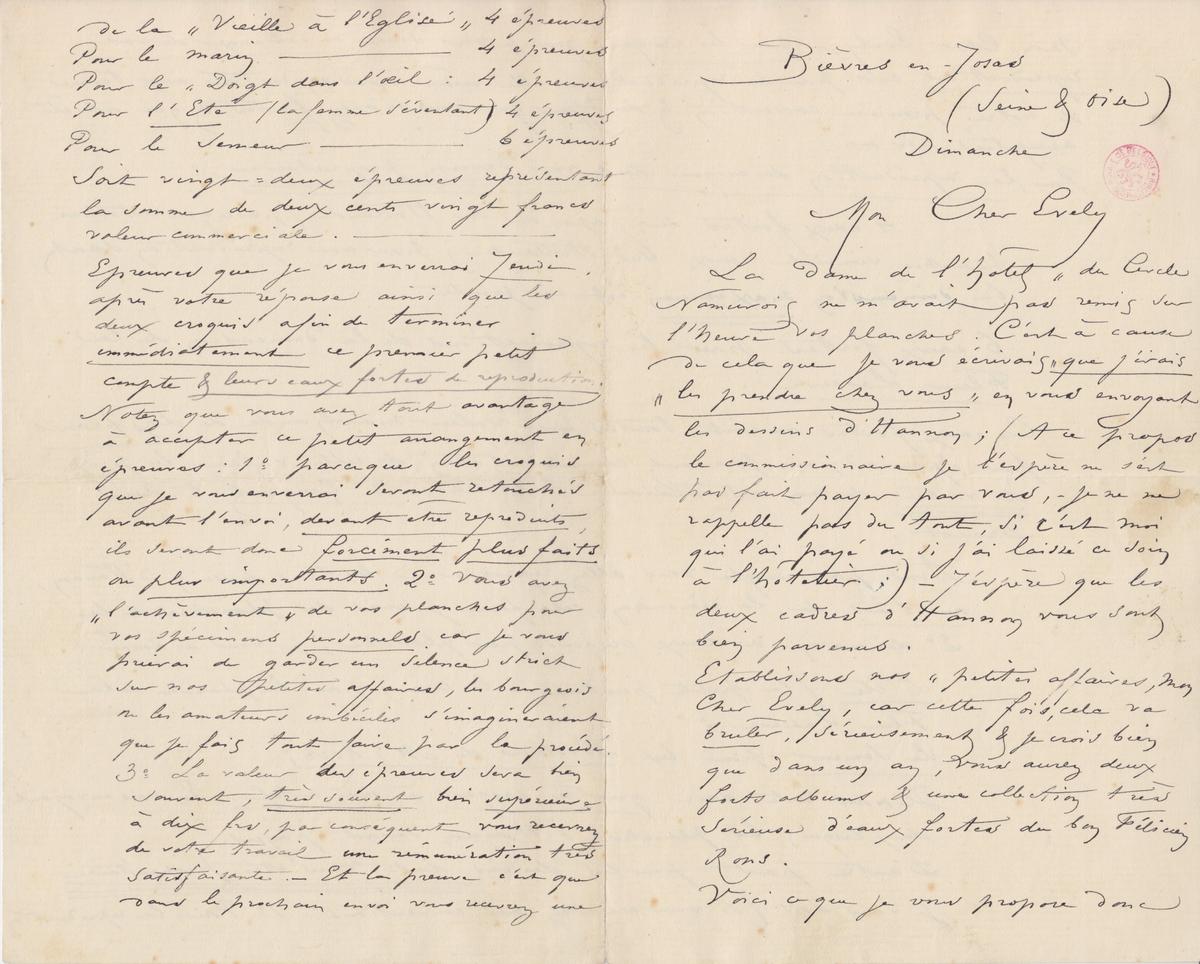 Bièvres en-Josas
(Seine & Oise)
Dimanche
Mon Cher Evely
La Dame de l'hôtel „ du Cercle
Namurois ne m'avait pas remis sur
l'heure vos planches. C'est à cause
de cela que je vous écrivais „ que j'irais
„ les prendre chez vous „ en vous envoyant
les dessins d'Hannon ; (A ce propos
le commissionnaire je l'espère ne s'est
pas fait payer par vous, - je ne me
rappelle pas du tout, si c'est moi
qui l'ai payé ou si j'ai laissé ce soin
à l'hôtelier ;) – J'espère que les
deux cadres d'Hannon vous sont
bien parvenus.
Etablissons nos „ petites affaires, mon
Cher Evely, car cette fois, cela va
bruler, sérieusement & je crois bien
que dans un an, vous aurez deux
forts albums & une collection très
sérieuse d'eaux fortes du bon Félicien
Rops.
Voici ce que je vous propose donc
de la „ Vieille à l'Eglise „ 4 épreuves
Pour le marin — 4 épreuves
Pour le „ Doigt dans l'œil : 4 épreuves
Pour l'Eté (la femme s'éventant) 4 épreuves
Pour le Semeur — 6 épreuves
Soit vingt=deux épreuves représentant
la somme de deux cents vingt francs
valeur commerciale. —
Epreuves que je vous enverrai Jeudi,
après votre réponse ainsi que les
deux croquis afin de terminer
immédiatement ce premier petit
compte & leurs eaux fortes de reproduction.
Notez que vous avez tout avantage
à accepter ce petit arrangement en
épreuves : 1° parceque les croquis
que je vous enverrai seront retouchés
avant l'envoi, devant etre reproduits,
ils seront donc forcément plus faits
ou plus importants. 2° Vous avez
„ l'achèvement „ de vos planches pour
vos spécimens personnels car je vous
prierai de garder un silence strict
sur nos petites affaires, les bourgeois
ou les amateurs imbéciles s'imagineraient
que je fais tout faire par le procédé.
3° La valeur des épreuves sera bien
souvent, très souvent bien supérieure
à dix frs, par conséquent vous recevrez
de votre travail une rémunération très
satisfaisante. – Et la preuve c'est que
dans le prochain envoi vous recevrez une